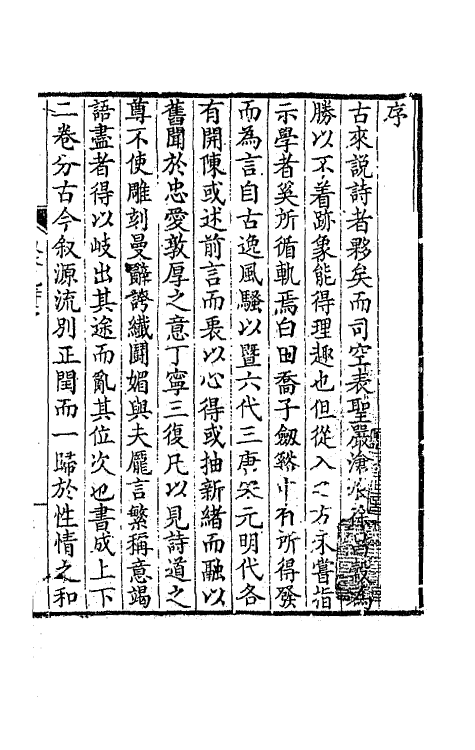 序
古來說詩者夥矣而司空表聖嚴滄浪徐昌穀為
勝以不着跡象能得理趣也但從入之方未嘗指
示學者奚所循軌焉白田喬子劔谿中有所得發
而為言自古逸風騷以暨六代三唐宋元明代各
有開陳或述前言而裹以心得或抽新緒而融以
舊聞於忠愛敦厚之意丁寧三復凡以見詩道之
尊不使雕刻曼辭誇纖鬭媚與夫龐言繁稱意竭
語盡者得以岐出其途而亂其位次也書成上下
二卷分古今叙源流別正閏而一歸於性情之和